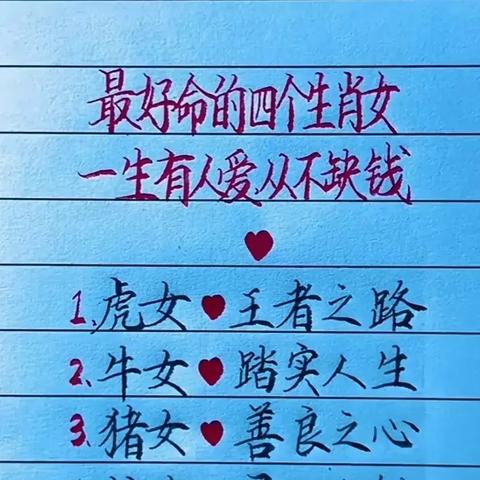 最好命的四个生肖女
一生有人爱从不缺钱
1.虎女♥王者之路
2.牛女♥踏实人生
3.猪女♥善良之心